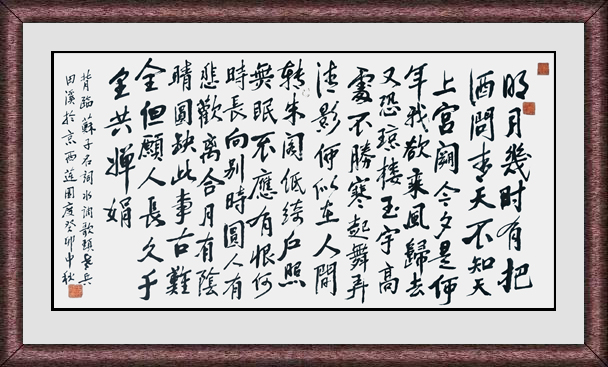 明月幾时有把
酒問青天不知天
上宮闕今夕是何
年我欲乘風歸去
又恐瓊樓玉宇高
處不勝寒起舞弄
清影何似在人間
轉朱阁低綺户照
無眠不應有恨何
時長向别時圓人有
悲歡離合月有陰
晴圓缺此事古難
全但願人長久千
里共嬋娟
背臨蘇子詞水調歌頭
田溪於京西蓮園度癸卯中秋